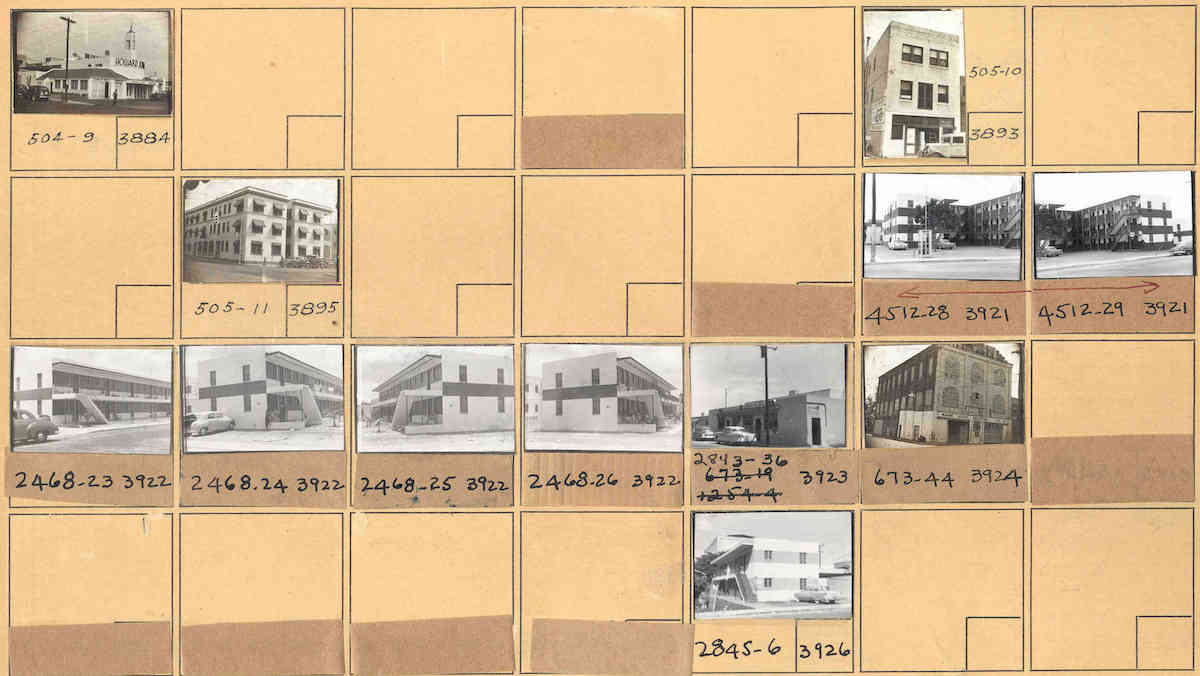 HOWARD
504-9 3884
505-10
3893
505-11 3895
4512-28 3921
4512-29 3921
2468-23 3922
2468-24 3922
2468-25 3922
2468-26 3922
2843-36
673-19 3923
1254-4
673-44 3924
2845-6 3926